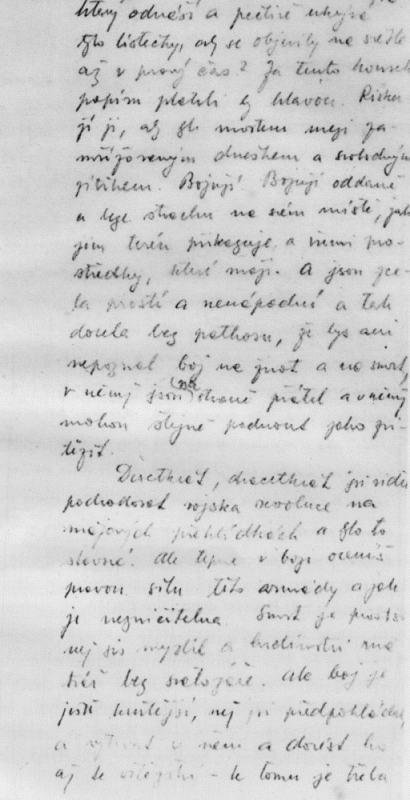 který odnáší a pečlivě ukrývá
tyto lístečky, aby se objevily na světle
až v pravý čas? Za tento kousek
papíru platili by hlavou. Risku-
jí ji, aby byli mostem mezi za-
mřížovaným dneškem a svobodným
zítřkem. Bojují. Bojují oddaně
a beze strachu na svém místě, jak
jim terén přikazuje, a všemi pro-
středky, které mají. A jsou zce-
la prostí a nenápadní a tak
docela bez pathosu, že bys ani
nepoznal boj na život a na smrt,
v němž jsou na straně přátel a v němž
mohou stejně padnout jako zví-
tězit.
Desetkrát, dvacetkrát jsi viděl
pochodovat vojska revoluce na
májových přehlídkách a bylo to
slavné. Ale teprve v boji oceníš
pravou sílu této armády a jak
je nezničitelná. Smrt je prostší
než sis myslil a hrdinství má
tvář bez svatozáře. Ale boj je
ještě krutější, než jsi předpokládal,
a vytrvat v něm a dovést ho
až k vítězství - k tomu je třeba